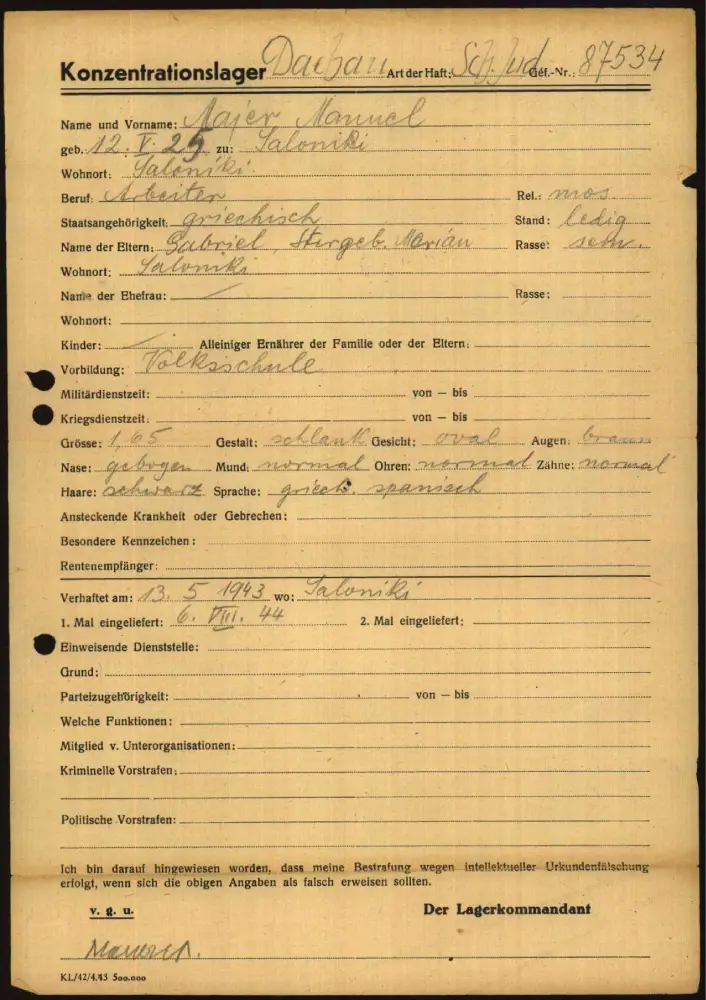 Konzentrationslager Dachau Art der Haft: Sch. Jud Gef.-Nr.: 87534
Name und Vorname: Majer Manuel
geb. 12. V. 25 zu: Saloniki
Wohnort: Saloniki.
Beruf: Arbeiter Rel.: mos
Staatsangehörigkeit: griechisch Stand: ledig
Name der Eltern: Gabriel, geb. Rasse: sem.
Wohnort: Saloniki
Name der Ehefrau: Rasse:
Wohnort:
Kinder: Alleiniger Ernährer der Familie oder der Eltern:
Vorbildung: Volksschule
Militärdienstzeit: von — bis
Kriegsdienstzeit: von — bis
Grösse: 1,65 Gestalt: schlank Gesicht: oval Augen: braun
Nase: gebogen Mund: normal Ohren: normal Zähne: normal
Haare: schwarz Sprache: griech. spanisch
Ansteckende Krankheit oder Gebrechen:
Besondere Kennzeichen:
Rentenempfänger:
Verhaftet am: 13. 5 1943 wo: Saloniki
1. Mal eingeliefert: 6. VIII. 44 2. Mal eingeliefert:
Einweisende Dienststelle:
Grund:
Parteizugehörigkeit: von — bis
Welche Funktionen:
Mitglied v. Unterorganisationen:
Kriminelle Vorstrafen:
Politische Vorstrafen:
Ich bin darauf hingewiesen worden, dass meine Bestrafung wegen intellektueller Urkundenfälschung
erfolgt, wenn sich die obigen Angaben als falsch erweisen sollten.
v. g. u. Der Lagerkommandant
KL/42/4.43 500.000